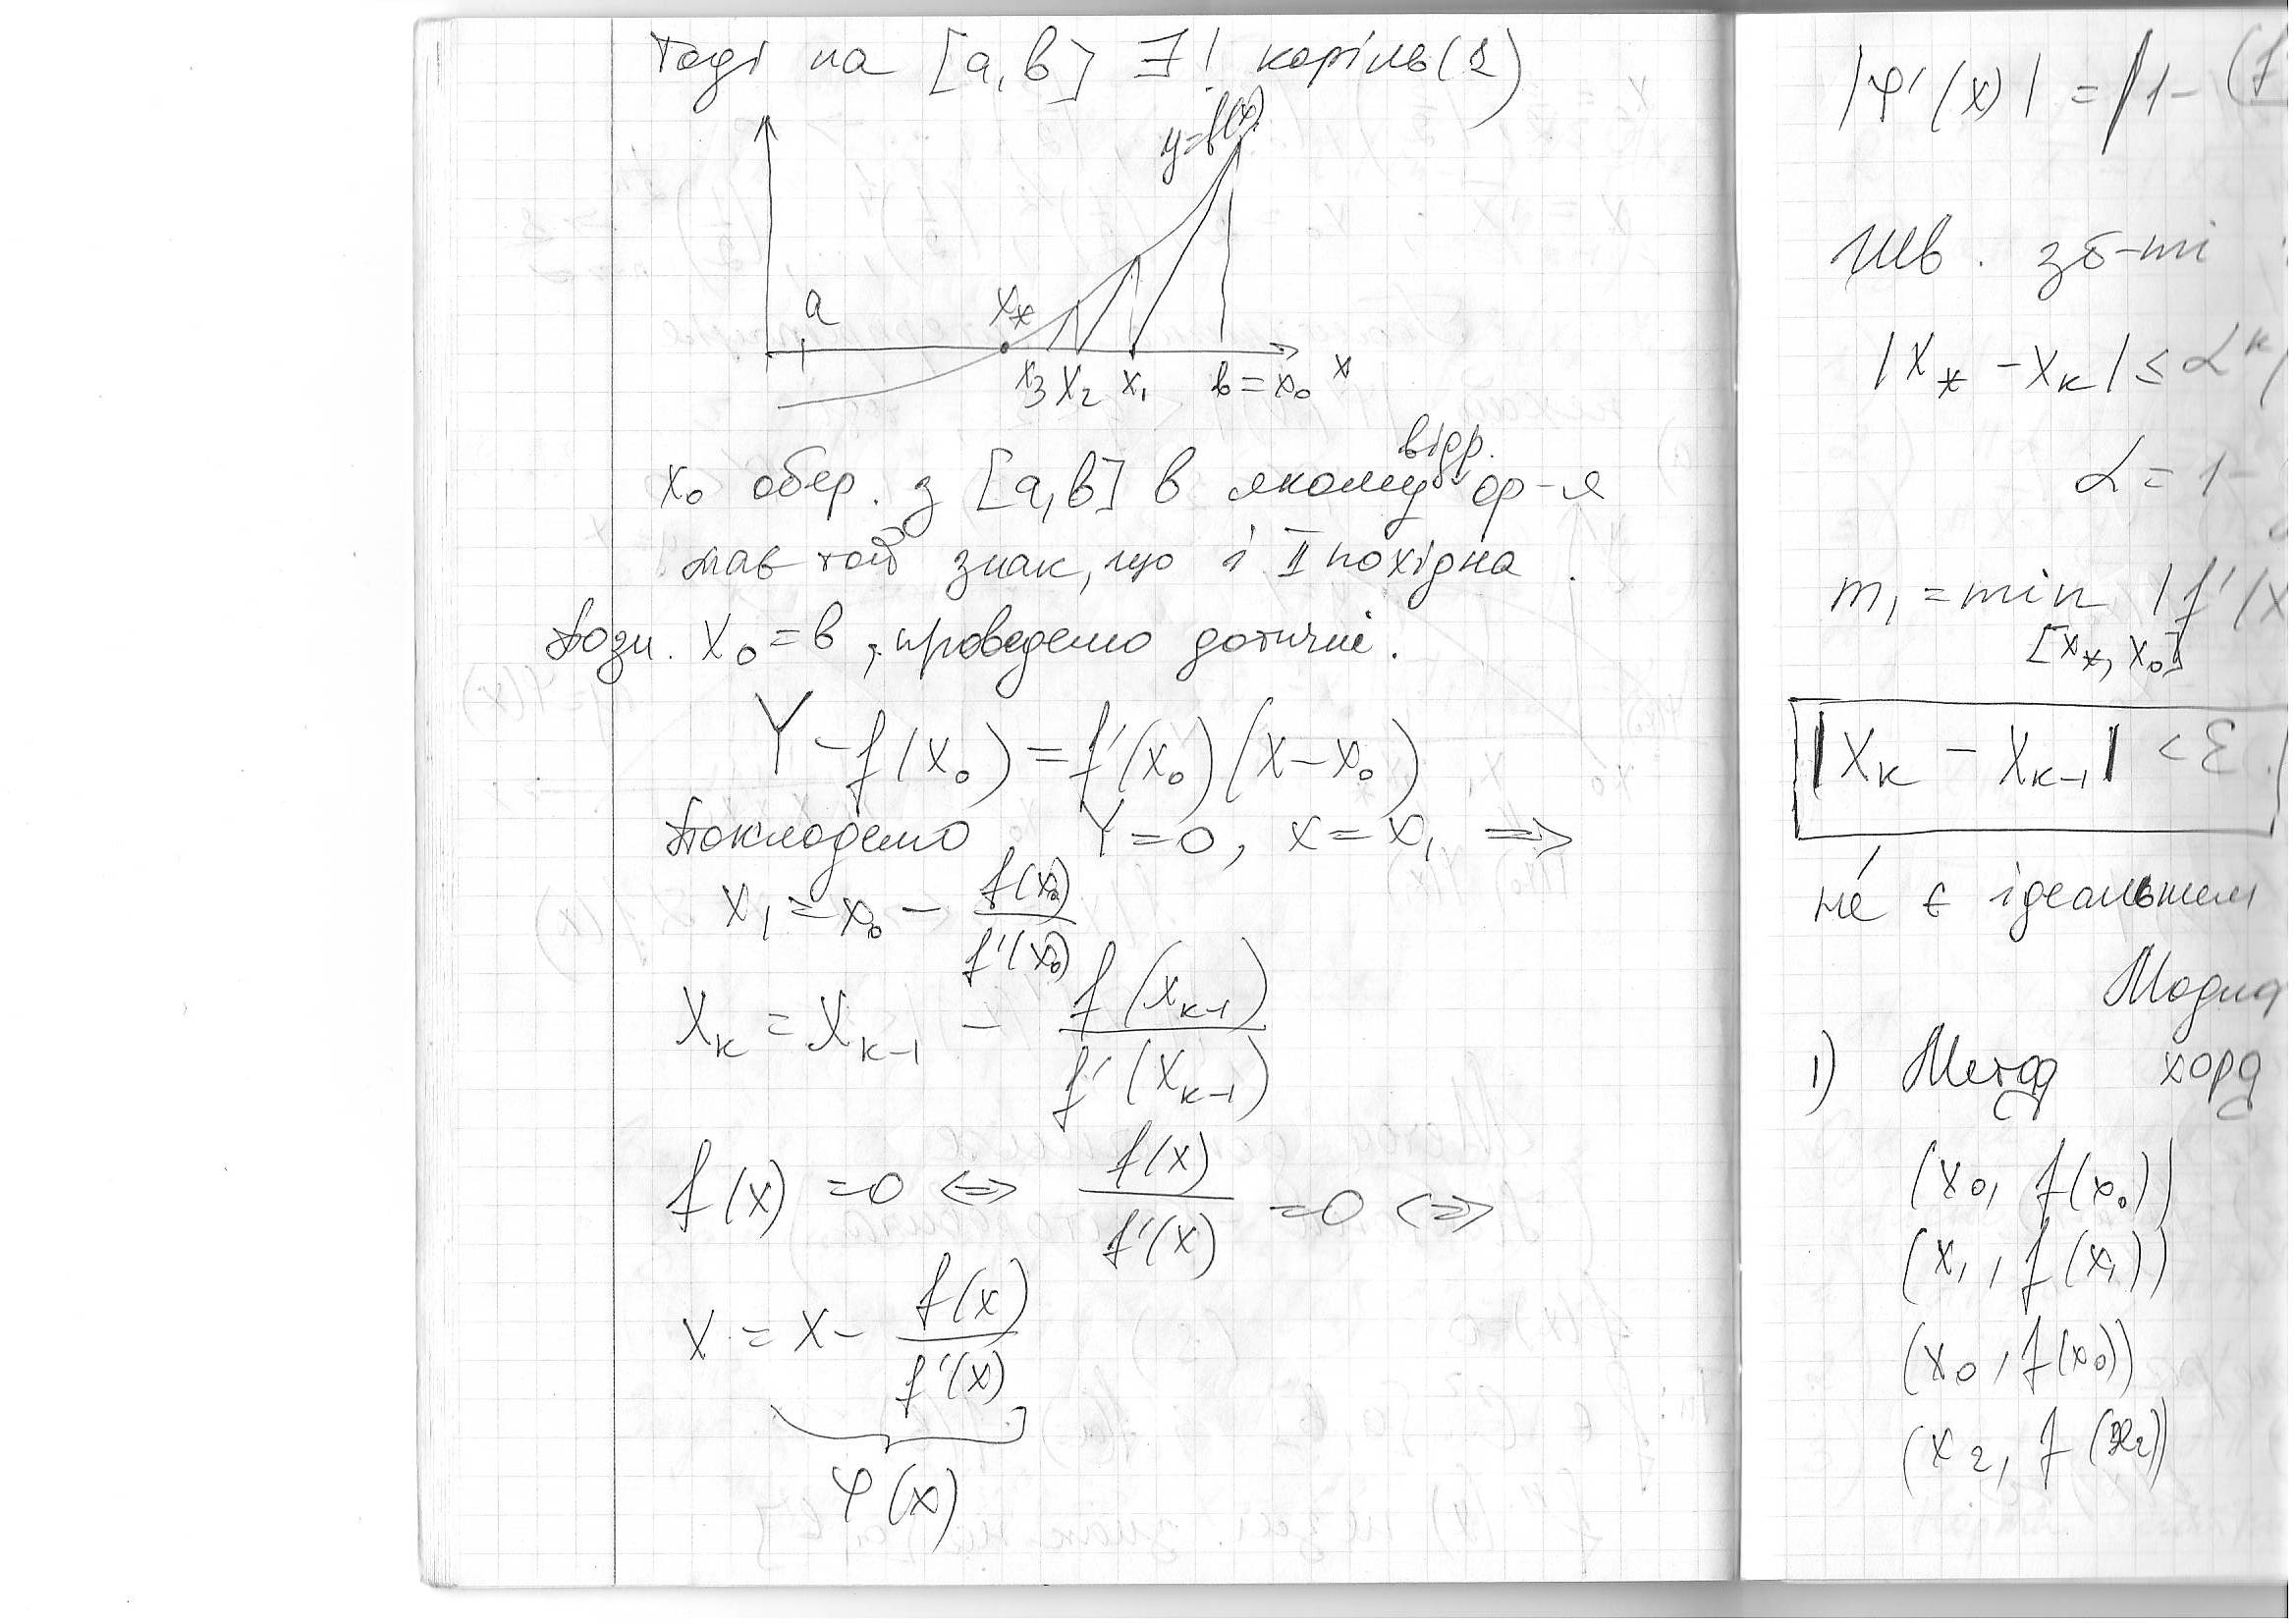 тоді на [a, b] ∃! корінь (1)
y=f(x)
a
x*
x3 x2 x1 b = x0 x
відр.
x0 обер. з [a, b] в якому ф-я
має той знак, що і II похідна.
Позн. x0 = b, проведемо дотичні.
Y - f(x0) = f'(x0)(x - x0)
Покладемо Y = 0, x = x1 ⇒
x1 = x0 - f(x0) / f'(x0)
xk = xk-1 - f(xk-1) / f'(xk-1)
f(x) = 0 ⇔ f(x) / f'(x) = 0 ⇔
x = x - f(x) / f'(x)
φ(x)
|φ'(x)| = |1 - (f
Шв. зб-ті
|x* - xk| ≤ α^k
α = 1 -
m1 = min |f'(x
[x*, x0]
|xk - xk-1| < ε.
не є ідеальним
Модиф
1) Метод хорд
(x0, f(x0))
(x1, f(x1))
(x0, f(x0))
(x2, f(x2))